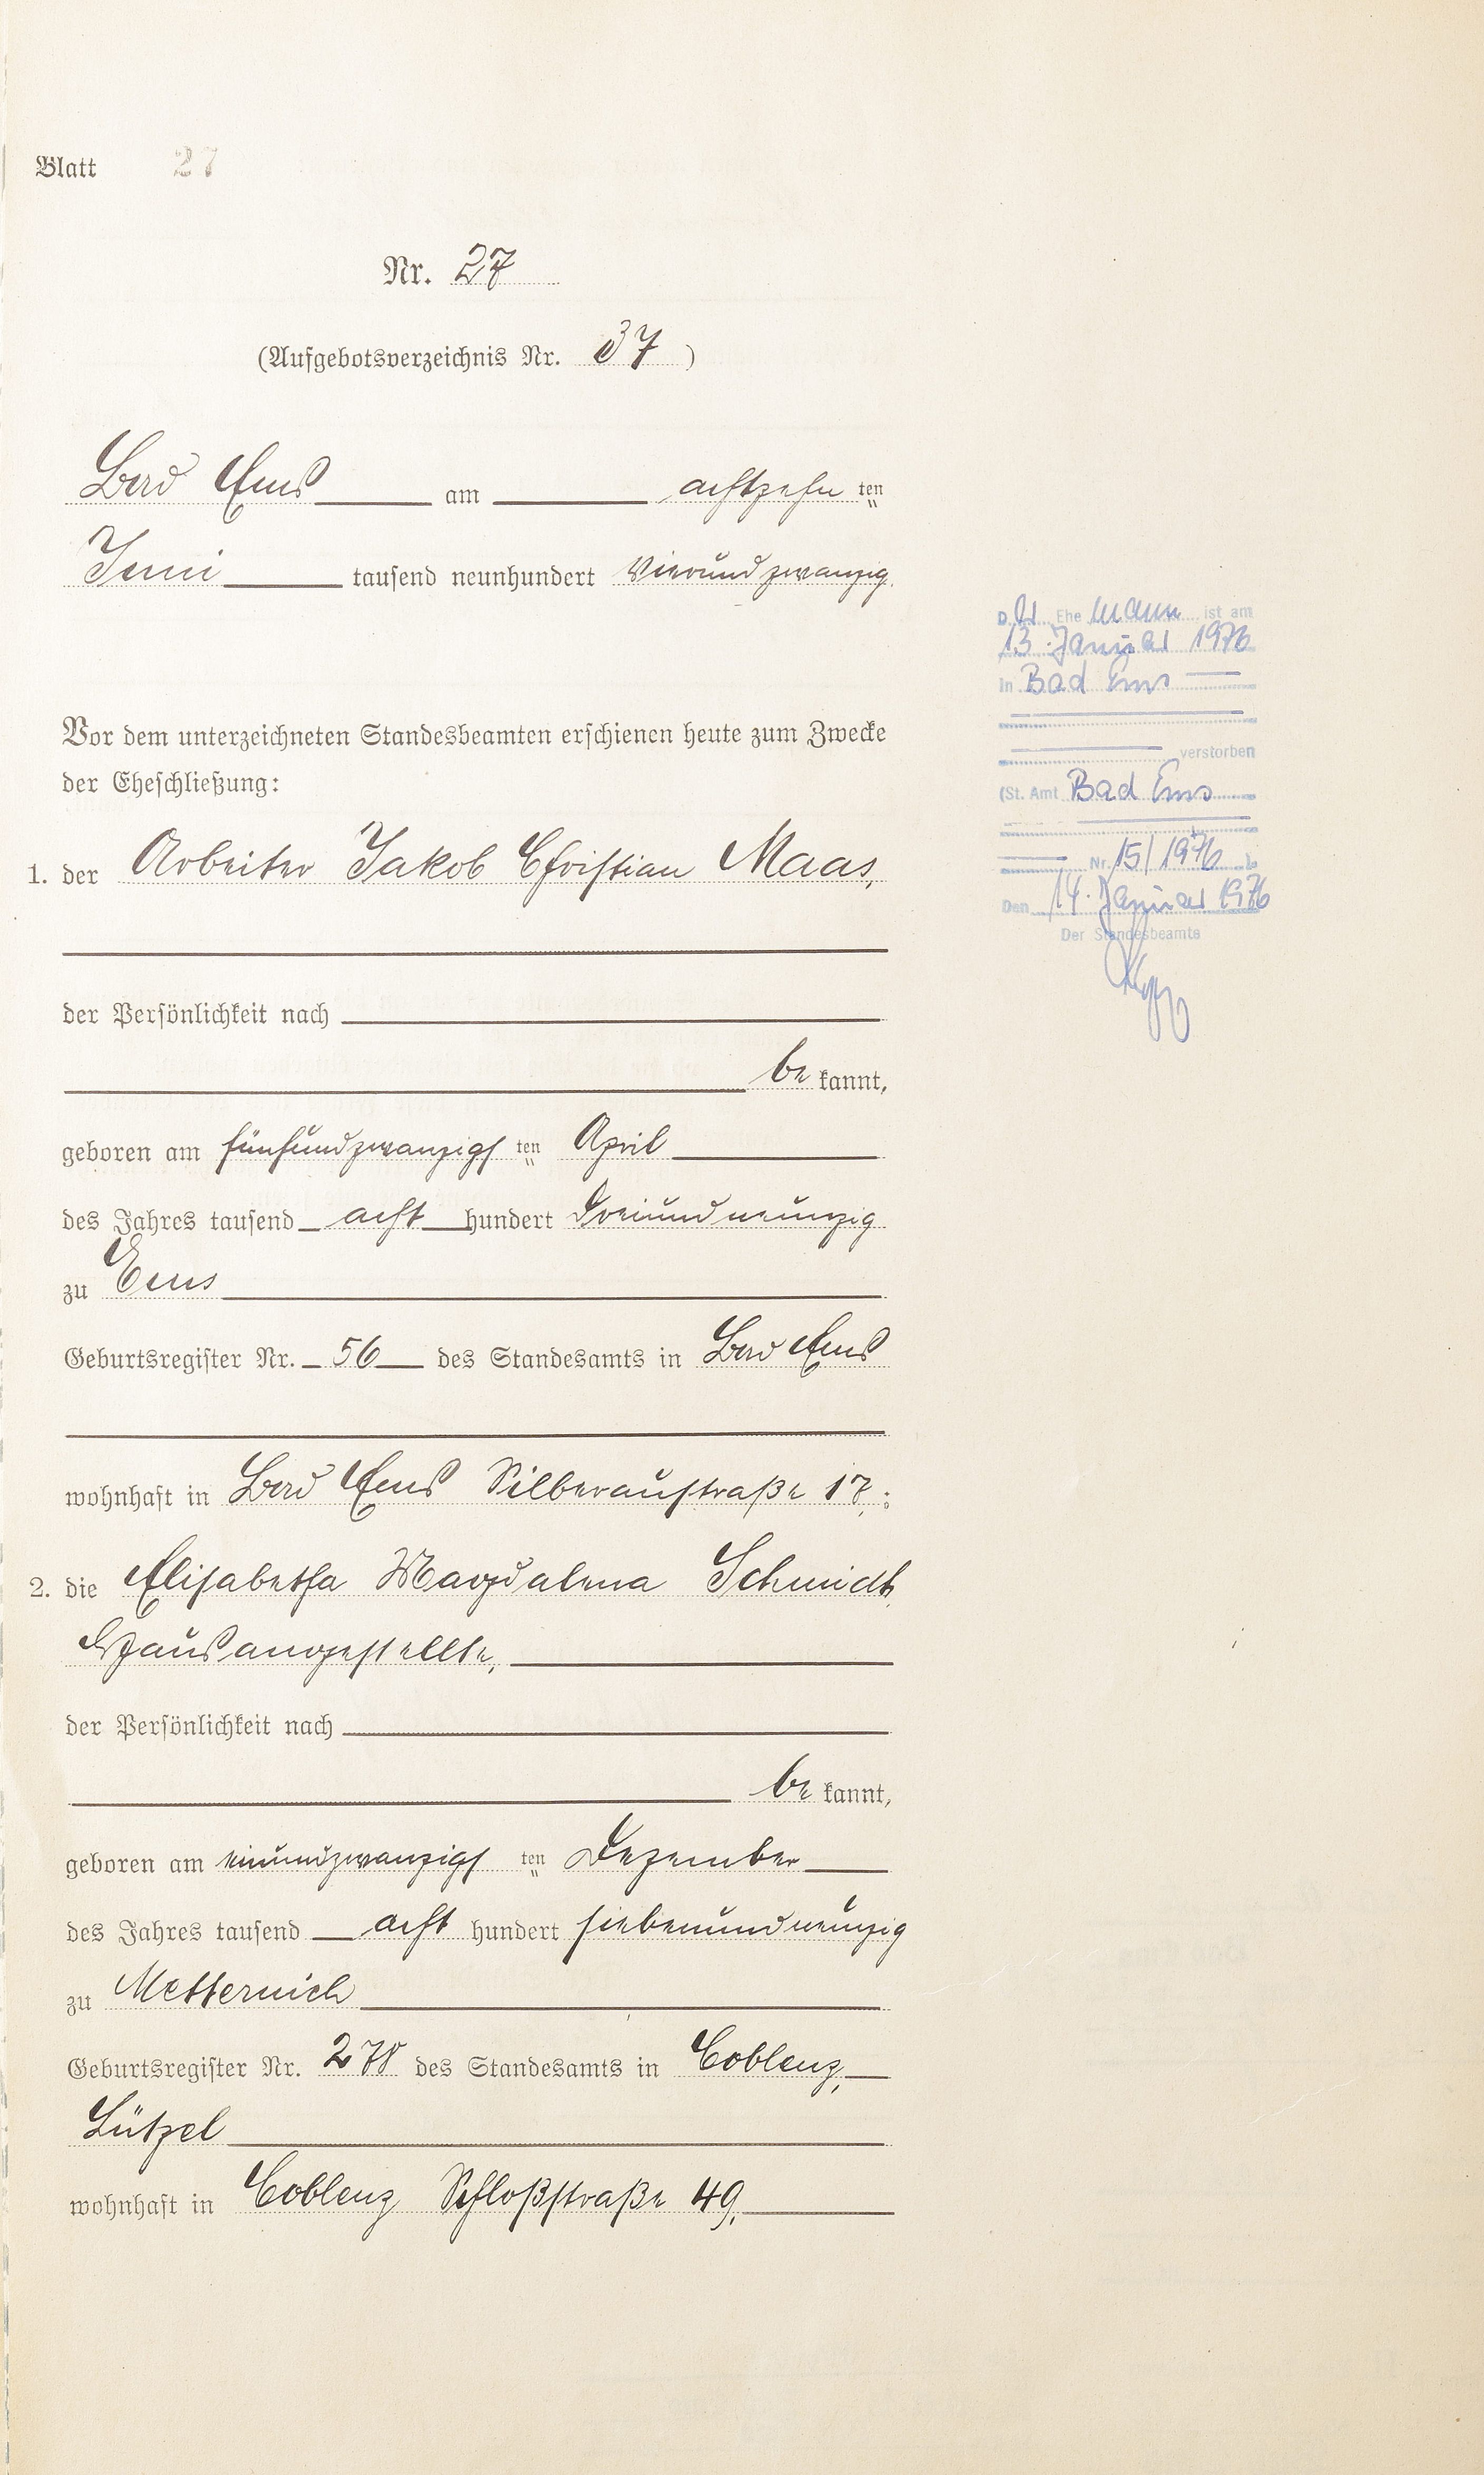 Blatt 27
Nr. 27
(Aufgebotsverzeichnis Nr. 37)
Bad Ems am achtzehnten
Juni tausend neunhundert vierundzwanzig
Vor dem unterzeichneten Standesbeamten erschienen heute zum Zwecke
der Eheschließung:
1. der Arbeiter Jakob Christian Maas,
der Persönlichkeit nach
bekannt,
geboren am fünfundzwanzigsten April
des Jahres tausend acht hundert dreiundneunzig
zu Ems
Geburtsregister Nr. 56 des Standesamts in Bad Ems
wohnhaft in Bad Ems Silberaustraße 17;
2. die Elisabetha Magdalena Schmidt,
Hausangestellte,
der Persönlichkeit nach
bekannt,
geboren am einundzwanzigsten Dezember
des Jahres tausend acht hundert siebenundneunzig
zu Metternich
Geburtsregister Nr. 278 des Standesamts in Coblenz,
Lützel
wohnhaft in Coblenz Schloßstraße 49,
Der Ehemann ist am
13. Januar 1976
in Bad Ems
verstorben
(St. Amt Bad Ems
Nr. 15/1976).
Den 14. Januar 1976
Der Standesbeamte